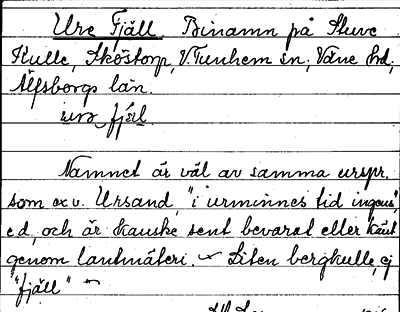 Ure Fjäll Binamn på Stuve
Kulle, Sköttorp, V.Tunhem sn, Väne hd,
Älfsborgs län.
fjäl.
Namnet är väl av samma urspr.
som ex.v. Ursand, "i urminnes tid ingens",
e d, och är kanske sent bevarat eller känt
genom lantmäteri. Liten bergkulle, ej
"fjäll"